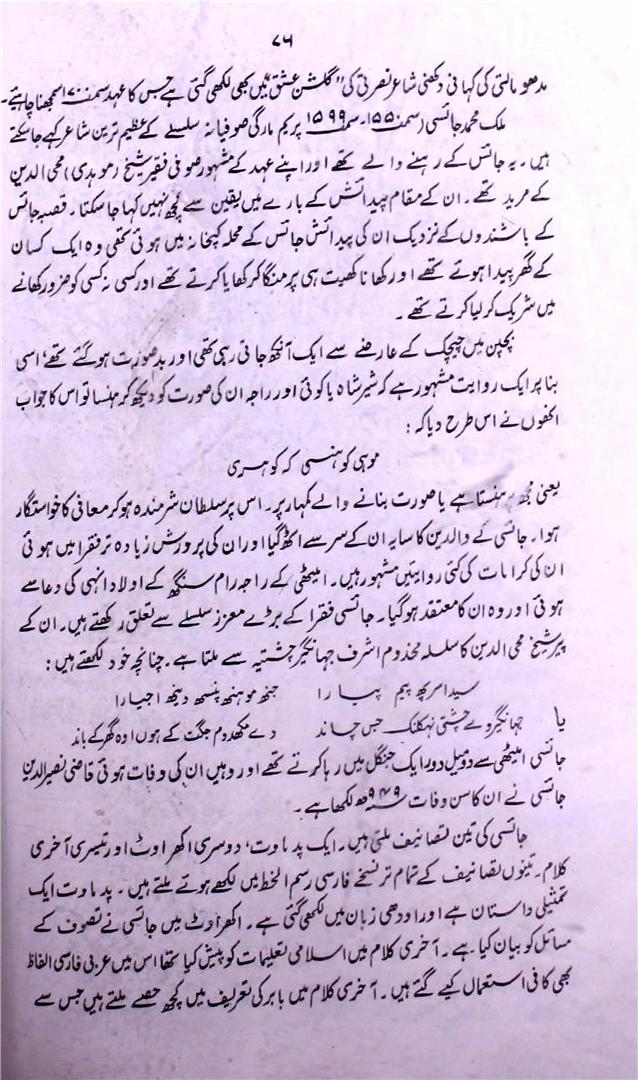 ۷۶
مدھو مالتی کی کہانی دکھنی شاعر نصرتی کی "گلشن عشق" میں بھی لکھی گئی ہے جس کا عہد سمت ۱۷۰۰ سمجھنا چاہیے۔
ملک محمد جائسی (سمت ۱۵۵۰۔ سمت ۱۵۹۹) پریم مارگی صوفیانہ سلسلے کے عظیم ترین شاعر کہے جا سکتے
ہیں۔ یہ جائس کے رہنے والے تھے اور اپنے عہد کے مشہور صوفی فقیر شیخ (موہدی) محی الدین
کے مرید تھے۔ ان کے مقام پیدائش کے بارے میں یقین سے کچھ نہیں کہا جا سکتا۔ قصبہ جائس
کے باشندوں کے نزدیک ان کی پیدائش جائس کے محلہ کنچانہ میں ہوئی تھی وہ ایک کسان
کے گھر پیدا ہوئے تھے اور کھانا کھیت ہی پر منگا کر کھایا کرتے تھے اور کسی نہ کسی کو ضرور کھانے
میں شریک کر لیا کرتے تھے۔
بچپن میں چیچک کے عارضے سے ایک آنکھ جاتی رہی تھی اور بدصورت ہو گئے تھے، اسی
بنا پر ایک روایت مشہور ہے کہ شیر شاہ یا کوئی اور راجہ ان کی صورت کو دیکھ کر ہنسا تو اس کا جواب
انھوں نے اس طرح دیا کہ :
موہی کو ہنسی کہ کوہری
یعنی مجھ پر ہنستا ہے یا صورت بنانے والے کمہار پر۔ اس پر سلطان شرمندہ ہو کر معافی کا خواستگار
ہوا۔ جائسی کے والدین کا سایہ ان کے سر سے اٹھ گیا اور ان کی پرورش زیادہ تر فقرا میں ہوئی
ان کی کرامات کی کئی روایتیں مشہور ہیں۔ امیٹھی کے راجہ رام سنگھ کے اولاد انہی کی دعا سے
ہوئی اور وہ ان کا معتقد ہو گیا۔ جائسی فقرا کے بڑے معزز سلسلے سے تعلق رکھتے ہیں۔ ان کے
پیر شیخ محی الدین کا سلسلہ مخدوم اشرف جہانگیر چشتیہ سے ملتا ہے۔ چنانچہ خود لکھتے ہیں :
سید اسرکھ پیم پیارا جنھ موہنہ پنسھ دینھ اجیارا
یا جہانگیر وے چشتی نہکلنک جس چاند دے مکھدوم جگت کے ہوں اوہ گھر کے باند
جائسی امیٹھی سے دو میل دور ایک جنگل میں رہا کرتے تھے اور وہیں ان کی وفات ہوئی قاضی نصیر الدین
جائسی نے ان کا سن وفات ۹۴۹ھ لکھا ہے۔
جائسی کی تین تصانیف ملتی ہیں۔ ایک پدماوت، دوسری اکھراوٹ اور تیسری آخری
کلام۔ تینوں تصانیف کے تمام تر نسخے فارسی رسم الخط میں لکھے ہوئے ملتے ہیں۔ پدماوت ایک
تمثیلی داستان ہے اور اودھی زبان میں لکھی گئی ہے۔ اکھراوٹ میں جائسی نے تصوف کے
مسائل کو بیان کیا ہے۔ آخری کلام میں اسلامی تعلیمات کو پیش کیا تھا اس میں عربی فارسی الفاظ
بھی کافی استعمال کیے گئے ہیں۔ آخری کلام میں بابر کی تعریف میں کچھ حصے ملتے ہیں جس سے